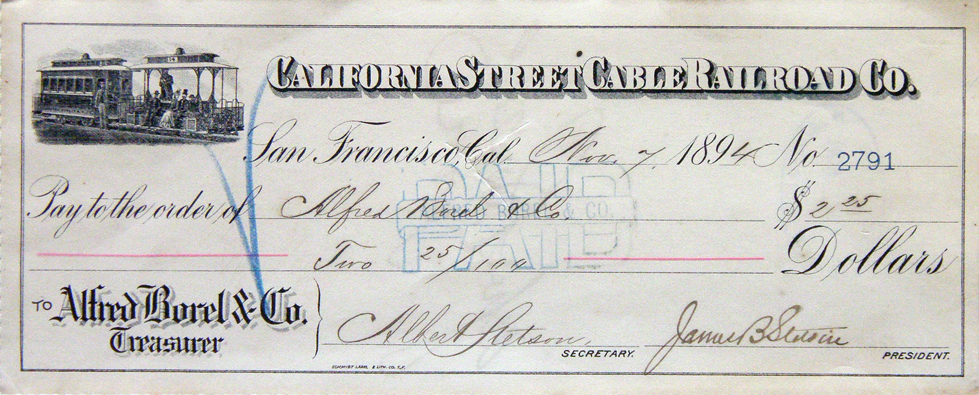 CALIFORNIA STREET CABLE RAILROAD CO.
San Francisco, Cal. Nov. 7 1894 No. 2791
Pay to the order of Alfred Borel & Co $2 25
PAID
ALFRED BOREL & CO.
PAID
Two 25/100 Dollars
TO Alfred Borel & Co.
Treasurer
Albert Stetson, SECRETARY.
James B Stetson PRESIDENT.
SCHMIDT LABEL & LITH. CO. S.F.